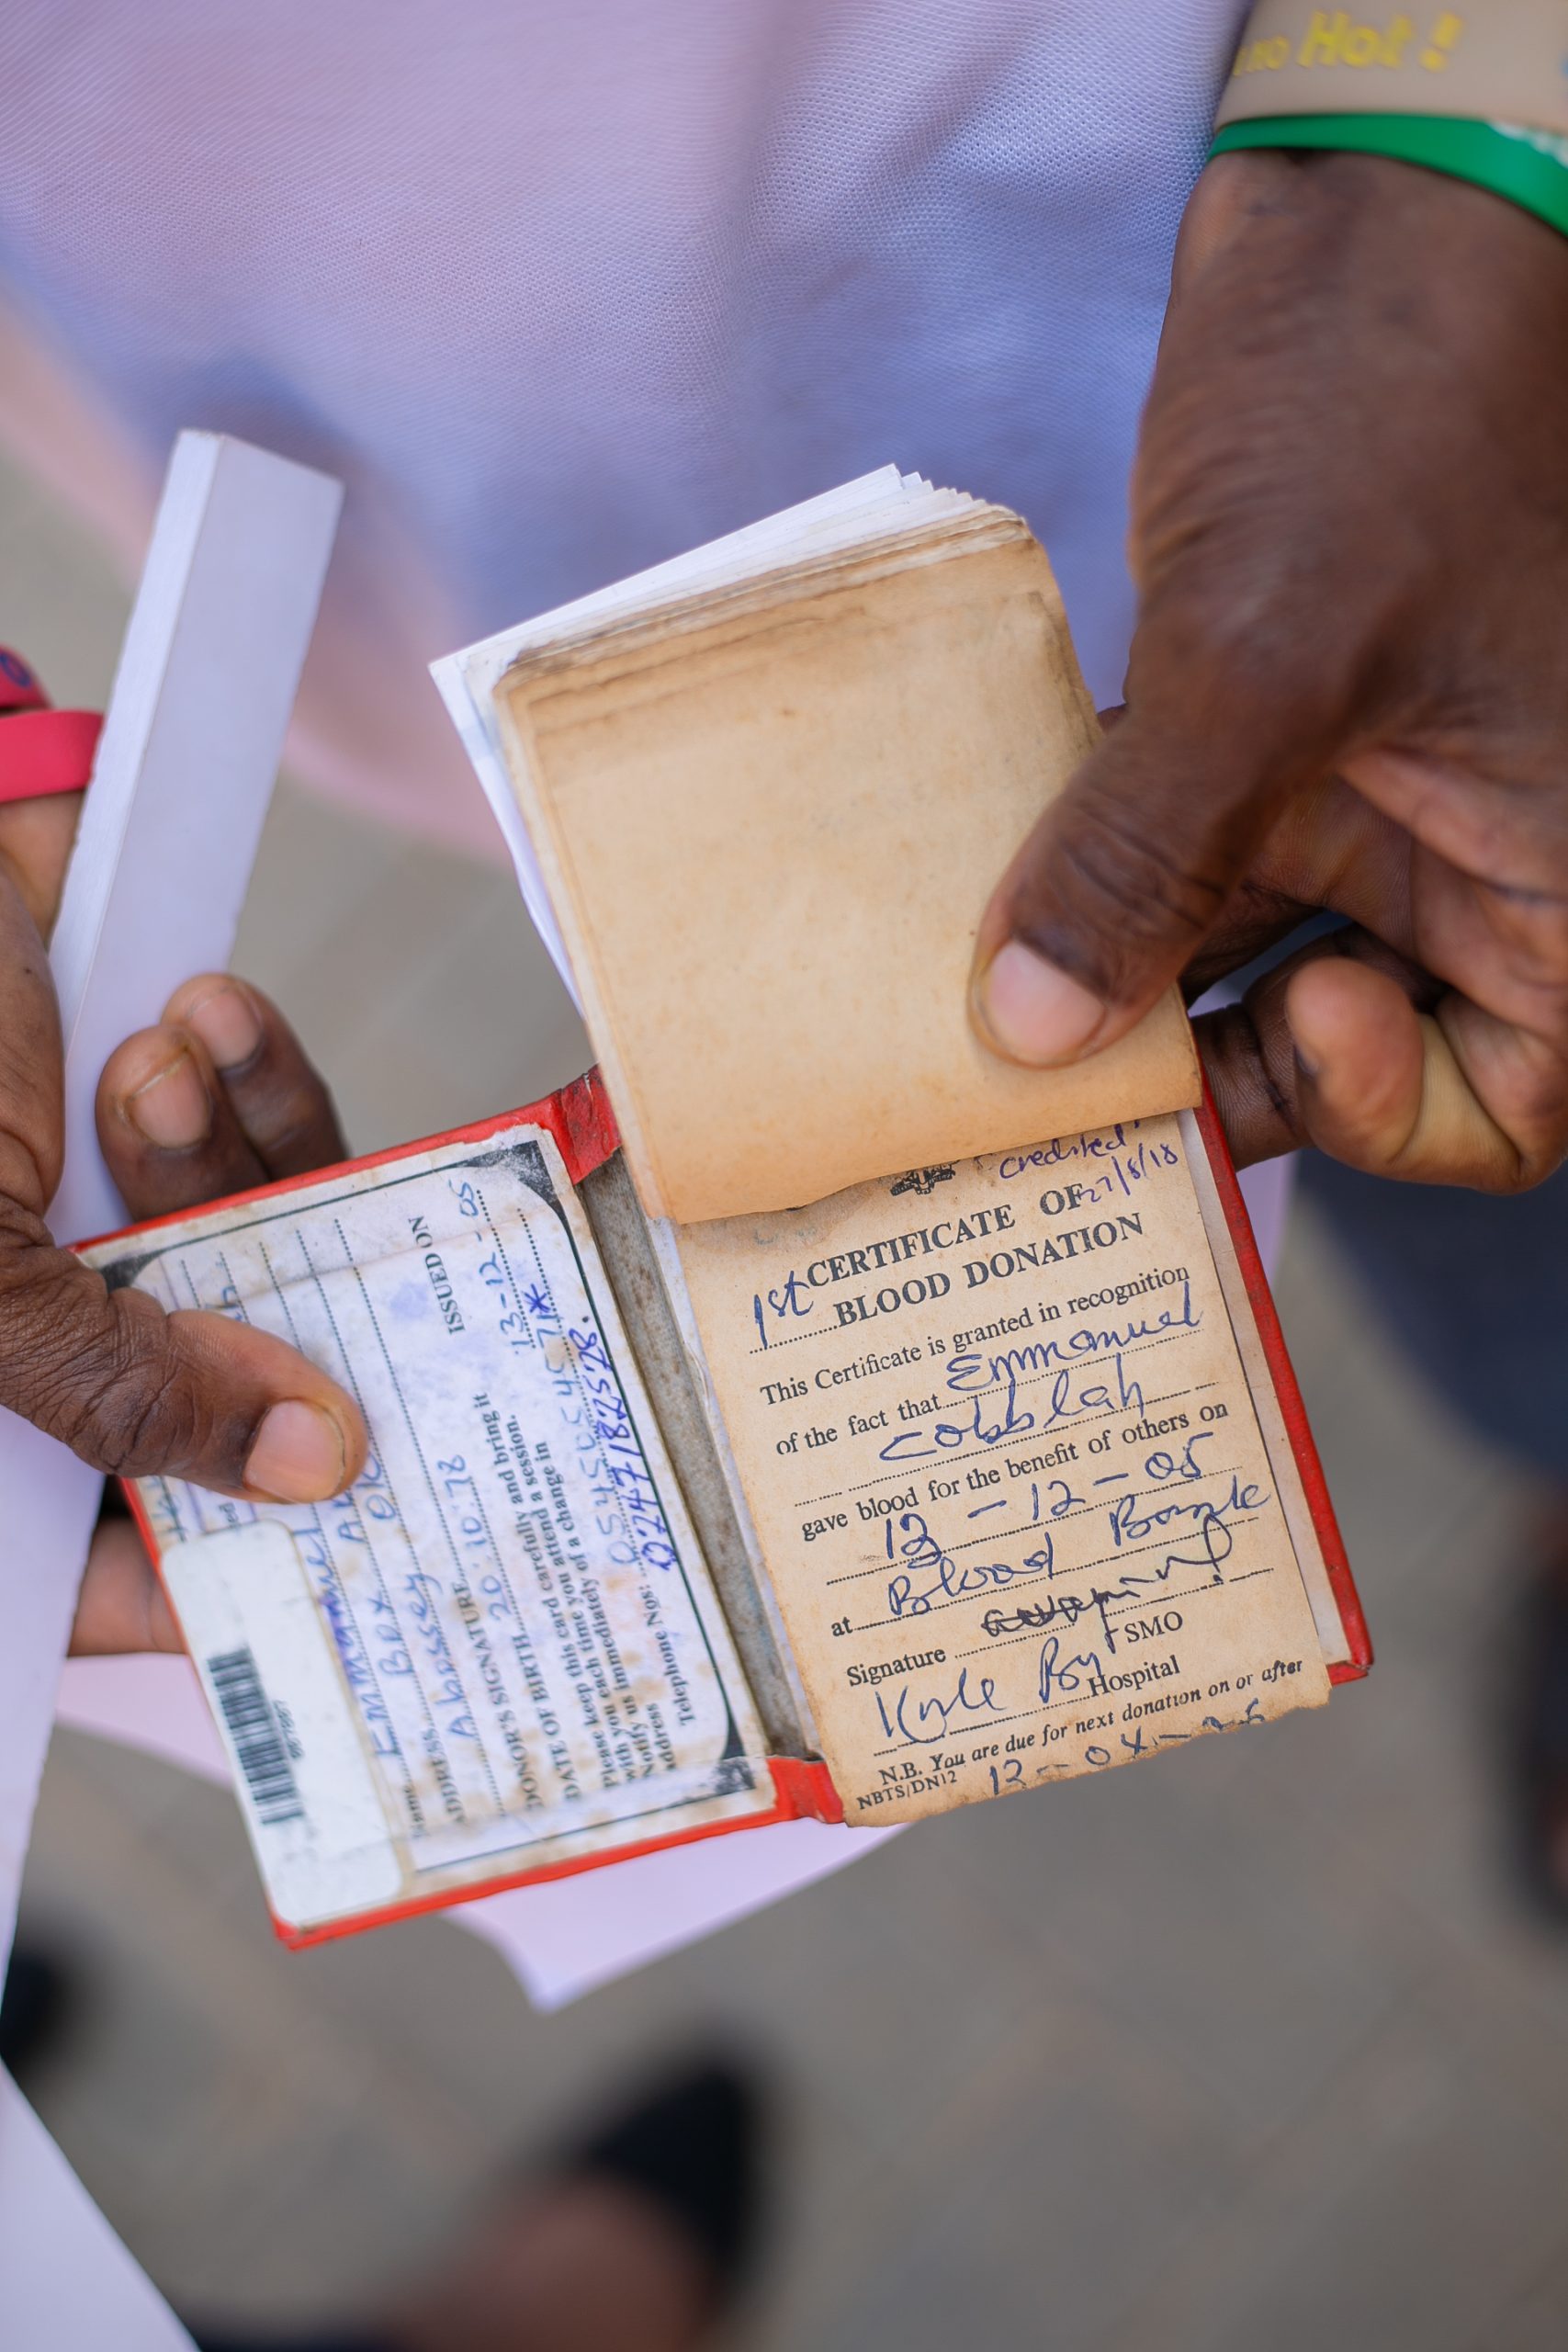 Hot !
credited
27/8/18
CERTIFICATE OF
1st BLOOD DONATION
This Certificate is granted in recognition
of the fact that Emmanuel
Cobblah
gave blood for the benefit of others on
13 - 12 - 05
at Blood Bank
Signature
SMO
Korle Bu Hospital
N.B. You are due for next donation on or after
NBTS/DN12 13 - 04 -
ISSUED ON
13-12-05
Name Emmanuel
ADDRESS Box
Abossey
DONOR'S SIGNATURE
DATE OF BIRTH 20.10.78
Please keep this card carefully and bring it
with you each time you attend a session.
Notify us immediately of a change in
address
Telephone Nos:
0247182578.